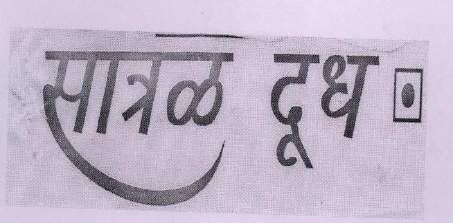 सात्रळ दूध